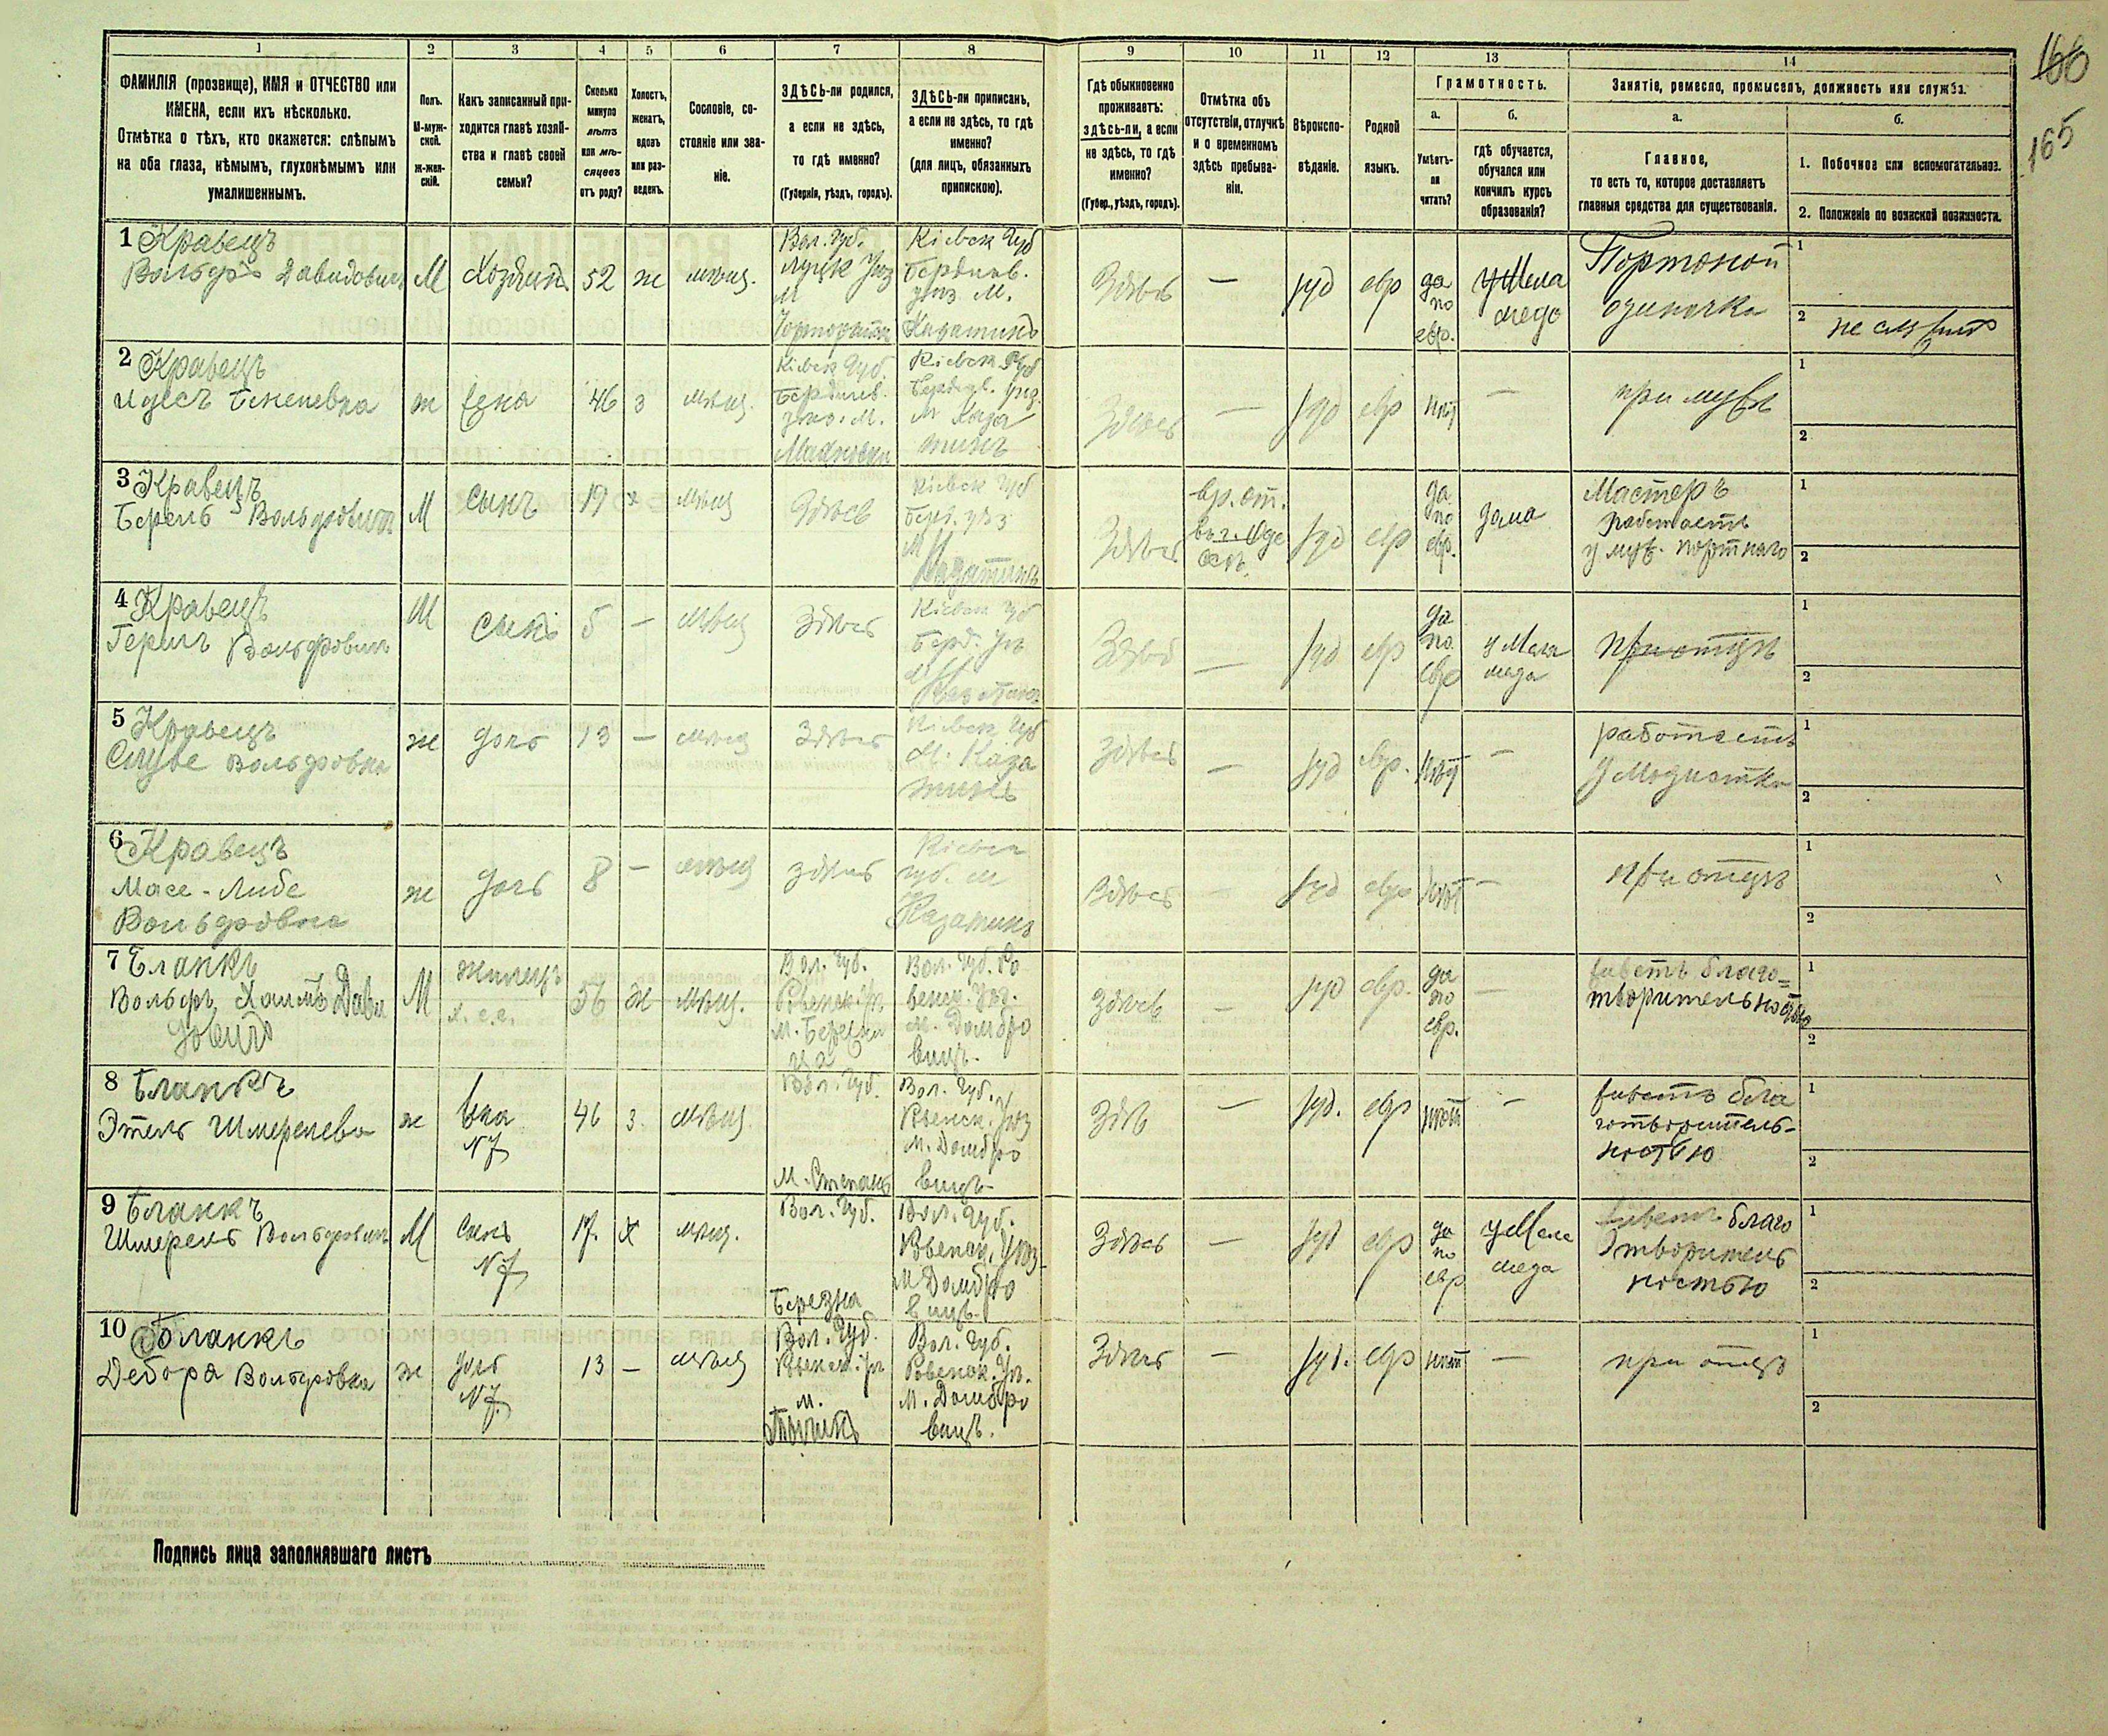 1 2 3 4 5 6 7 8 9 10 11 12 13 14
166
165
ФАМИЛІЯ (прозвище), ИМЯ и ОТЧЕСТВО или
ИМЕНА, если ихъ нѣсколько.
Отмѣтка о тѣхъ, кто окажется: слѣпымъ
на оба глаза, нѣмымъ, глухонѣмымъ или
умалишеннымъ.
Полъ.
М-муж-
ской.
ж-жен-
скій.
Какъ записанный при-
ходится главѣ хозяй-
ства и главѣ своей
семьи?
Сколько
минуло
лѣтъ
или мѣ-
сяцевъ
отъ роду?
Холостъ,
женатъ,
вдовъ
или раз-
веденъ.
Сословіе, со-
стояніе или зва-
ніе.
ЗДѢСЬ-ли родился,
а если не здѣсь,
то гдѣ именно?
(Губернія, уѣздъ, городъ).
ЗДѢСЬ-ли приписанъ,
а если не здѣсь, то гдѣ
именно?
(для лицъ, обязанныхъ
припискою).
Гдѣ обыкновенно
проживаетъ:
здѣсь-ли, а если
не здѣсь, то гдѣ
именно?
(Губер., уѣздъ, городъ).
Отмѣтка объ
отсутствіи, отлучкѣ
и о временномъ
здѣсь пребыва-
ніи.
Вѣроиспо-
вѣданіе.
Родной
языкъ.
Грамотность.
а.
Умѣетъ-
ли
читать?
б.
гдѣ обучается,
обучался или
кончилъ курсъ
образованія?
Занятіе, ремесло, промыселъ, должность или служба.
а.
Главное,
то есть то, которое доставляетъ
главныя средства для существованія.
б.
1. Побочное или вспомогательное.
2. Положеніе по воинской повинности.
1 Кравецъ
Вольфъ Давидовичъ
М
Хозяинъ
52
ж
мѣщ.
Вол. Губ.
Луцк Уѣз
М
Кіевск Губ
Бердичев.
уѣз М.
Казатинъ
Здѣсь
—
іуд
евр
да
по
евр.
у Мела
меда
Портной
одиночка
1
2
2 Кравецъ
ж
жена
46
з
мѣщ.
Кіевск Губ.
Бердичев.
уѣз. М.
Махновка
Кіевск Губ
Бердич. Уѣз.
М Каза
тинъ
Здѣсь
—
іуд
евр
нѣт
—
при мужѣ
1
2
3 Кравецъ
Берель Вольфовичъ
М
сынъ
19
х
мѣщ
Здѣсь
Кіевск Губ
Берд. уѣз
М
Казатинъ
Здѣсь
вр. от.
в г. Оде
ссѣ.
іуд
евр
да
по
евр.
дома
Мастеръ
работаетъ
у муж. портнаго
1
2
4 Кравецъ
Вольфовичъ
М
сынъ
5
—
мѣщ
Здѣсь
Кіевск Губ
Берд. Уѣ
М
Казатинъ
Здѣсь
—
іуд
евр
да
по
евр
у Мела
меда
при отцѣ
1
2
5 Кравецъ
Вольфовна
ж
дочь
13
—
мѣщ
Здѣсь
Кіевск Губ
М. Каза
тинъ
Здѣсь
—
іуд
евр.
нѣт
—
работаетъ
у Модистки
1
2
6 Кравецъ
Масе-Либе
Вольфовна
ж
дочь
8
—
мѣщ
здѣсь
Кіевск
губ. м
Казатинъ
Здѣсь
—
іуд
евр
нѣт
—
при отцѣ
1
2
7 Бланкъ
Вольфъ Хаимъ Дави
довичъ
М
жилецъ
56
ж
мѣщ.
Вол. Губ.
Ровенск. Уѣ.
Вол. Губ. Ро
венск. Уѣз.
м. Домбро
виц.
Здѣсь
—
іуд
евр.
да
по
евр.
—
живетъ благо-
творительностью
1
2
8 Бланкъ
Этель Шмерелева
ж
жна
N 7
46
з.
мѣщ
Вол. Губ.
М. Степань
Вол. Губ.
Ровенск. Уѣз
М. Домбро
виц.
Здѣ
—
іуд.
евр
нѣт
—
живетъ бла
готворитель-
ностью
1
2
9 Бланкъ
Шмерель Вольфовичъ
М
сынъ
N 7
17.
х
мѣщ.
Вол. Губ.
Березна
Вол. Губ.
Ровенск. Уѣз.
М Домбро
виц.
Здѣсь
—
іуд
евр
да
по
евр
у Мела
меда
живетъ благо
творитель
ностью
1
2
10 Бланкъ
Дебора Вольфовна
ж
дочь
N 7.
13
—
мѣщ
Вол. Губ.
Ровенск. Уѣ
м.
Вол. Губ.
Ровенск. Уѣ.
М. Домбро
виц.
Здѣсь
—
іуд.
евр
нѣт
—
при отцѣ
1
2
Подпись лица заполнявшаго листъ